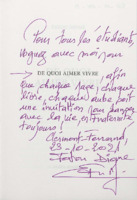 Pour tous les étudiants,
voguez avec moi pour
DE QUOI AIMER VIVRE
afin
que chaque page, chaque
livre, chaque aube soit
une invitation pour danser
avec la vie en fraternité
toujours !
Clermont-Ferrand
23-10-2021
Fatou Diome